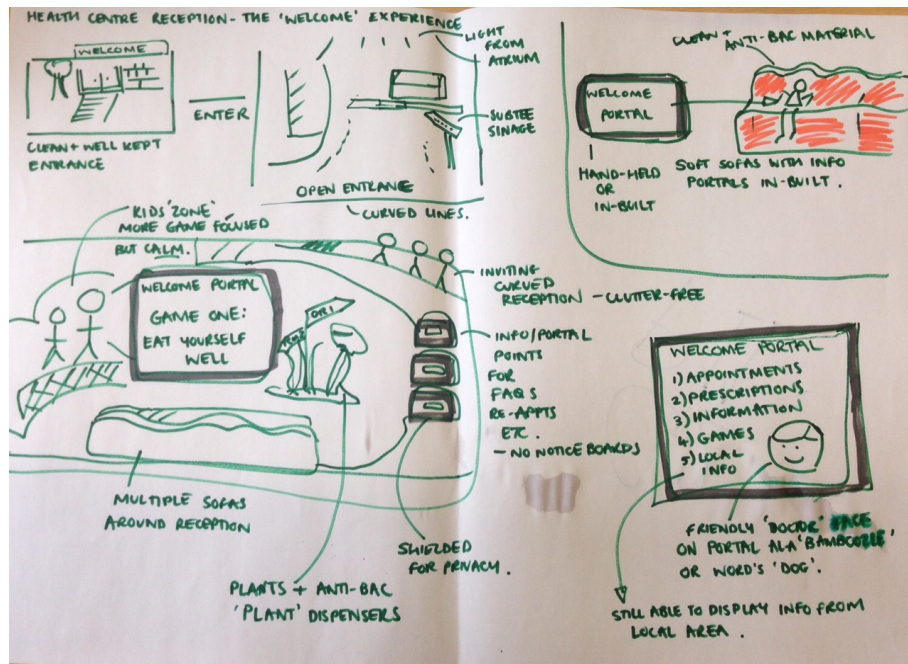 HEALTH CENTRE RECEPTION - THE 'WELCOME' EXPERIENCE
WELCOME
CLEAN + WELL KEPT
ENTRANCE
ENTER
LIGHT
FROM
ATRIUM
SUBTLE
SINAGE
OPEN ENTRANCE
CURVED LINES.
CLEAN +
ANTI-BAC MATERIAL
WELCOME
PORTAL
HAND-HELD
OR
IN-BUILT
SOFT SOFAS WITH INFO
PORTALS IN-BUILT.
KIDS 'ZONE'
MORE GAME FOCUSED
BUT CALM.
WELCOME PORTAL
GAME ONE:
EAT YOURSELF
WELL
DR1
INVITING
CURVED
RECEPTION - CLUTTER-FREE
INFO/PORTAL
POINTS
FOR
FAQS
RE-APPTS
ETC.
- NO NOTICE BOARDS
MULTIPLE SOFAS
AROUND RECEPTION
PLANTS + ANTI-BAC
'PLANT' DISPENSERS
SHIELDED
FOR PRIVACY.
WELCOME PORTAL
1) APPOINTMENTS
2) PRESCRIPTIONS
3) INFORMATION
4) GAMES
5) LOCAL
INFO
FRIENDLY 'DOCTOR' FACE
ON PORTAL ALA 'BAMBOOZLE'
OR WORD'S 'DOG'.
STILL ABLE TO DISPLAY INFO FROM
LOCAL AREA.